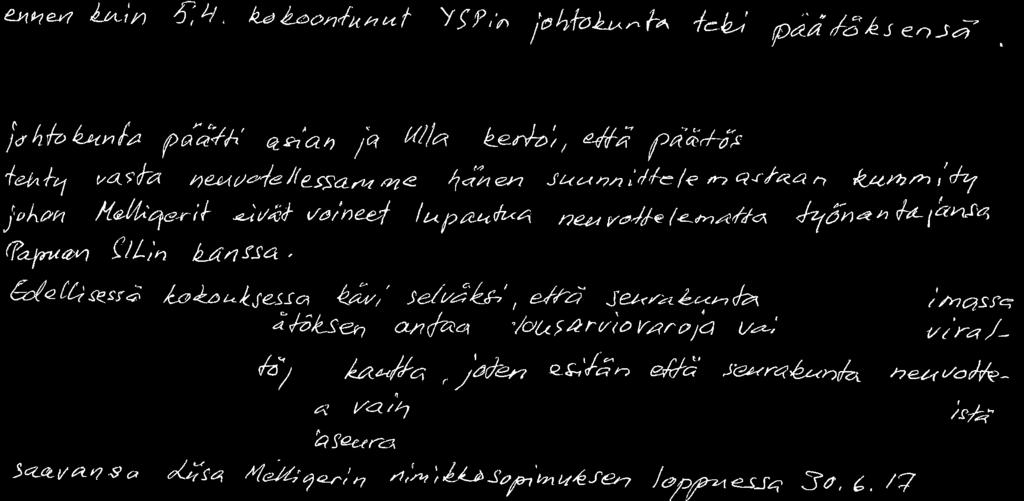 ennen kuin 5.4. kokoontunut YSPin johtokunta teki päätöksensä.
johtokunta päätti asian ja Ulla kertoi, että päätös
tehty vasta neuvotellessamme hänen suunnittelemastaan kummity
johon Melligerit eivät voineet lupautua neuvottelematta työnantajansa
Papuan SILin kanssa.
Edellisessä kokouksessa kävi selväksi, että seurakunta imassa
ätöksen antaa lousarviovaroja vai viral-
töj kautta, joten esitän että seurakunta neuvotte-
a vain istä
aseura
saavansa Liisa Melligerin nimikkosopimuksen loppuessa 30.6.17